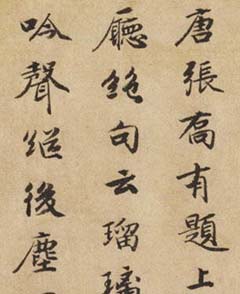 唐張喬有題上
廳絶句云瑠璃
吟聲継後塵